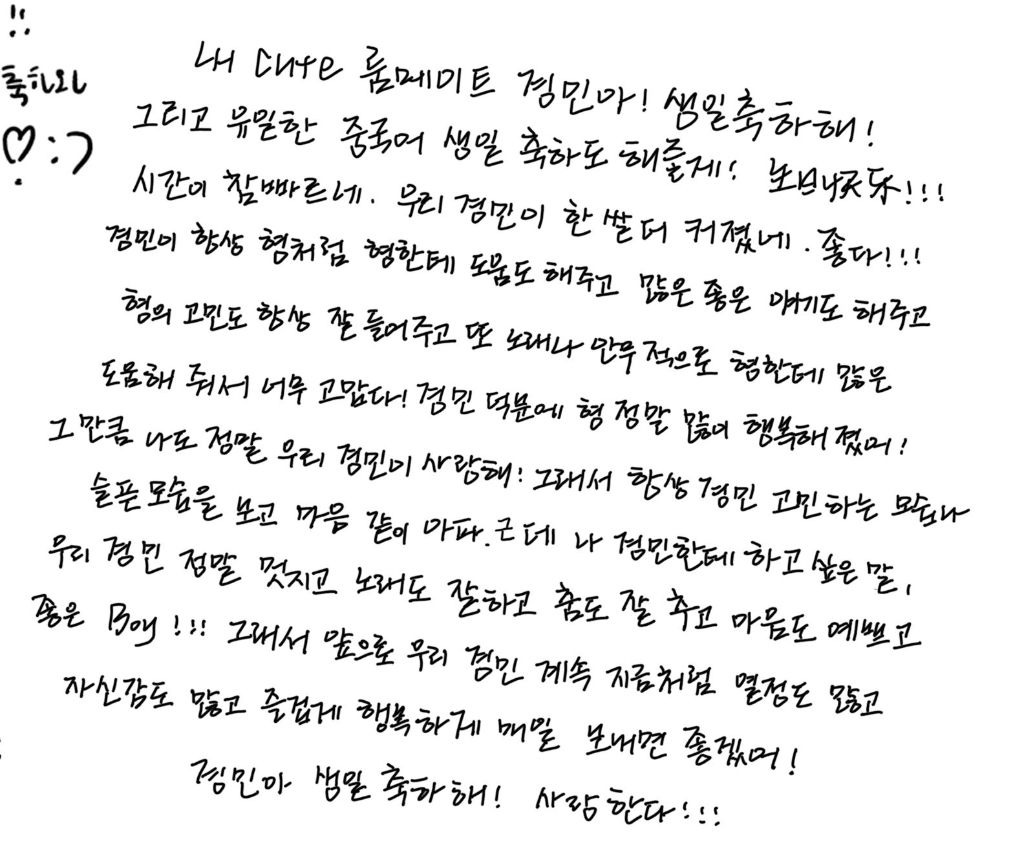 !!
축하와
♡:)
내 cute 룸메이트 경민아! 생일축하해!
그리고 유일한 중국어 생일 축하도 해줄게! 生日快乐!!!
시간이 참빠르네. 우리 경민이 한 쌀더 커졌네. 좋다!!!
경민이 항상 형처럼 형한테 도움도 해주고 많은 좋은 얘기도 해주고
형의 고민도 항상 잘 들어주고 또 노래나 안무적으로 형한테 많은
도움해 줘서 너무 고맙다! 경민 덕분에 형 정말 많이 행복해졌어!
그만큼 나도 정말 우리 경민이 사랑해! 그래서 항상 경민 고민하는 모습나
슬픈모습을 보고 마음 같이 아파. 근데 나 경민한테 하고 싶은 말,
우리 경민 정말 멋지고 노래도 잘하고 춤도 잘 추고 마음도 예쁘고
좋은 Boy!!! 그래서 앞으로 우리 경민 계속 지금처럼 열정도 많고
자신감도 많고 즐겁게 행복하게 매일 보내면 좋겠어!
경민아 생일 축하해! 사랑한다!!!